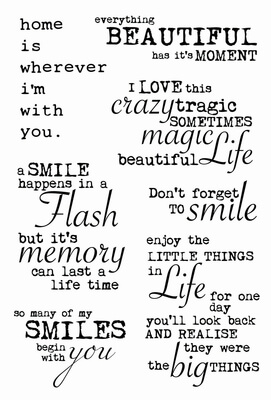 home
is
wherever
i'm
with
you.
everything
BEAUTIFUL
has it's MOMENT
I LOVE this
crazy tragic
SOMETIMES
magic
beautiful Life
a SMILE
happens in a
Flash
but it's
memory
can last a
life time
Don't forget
TO smile
so many of my
SMILES
begin
with you
enjoy the
LITTLE THINGS
in Life for one
day
you'll look back
AND REALISE
they were
the big THINGS